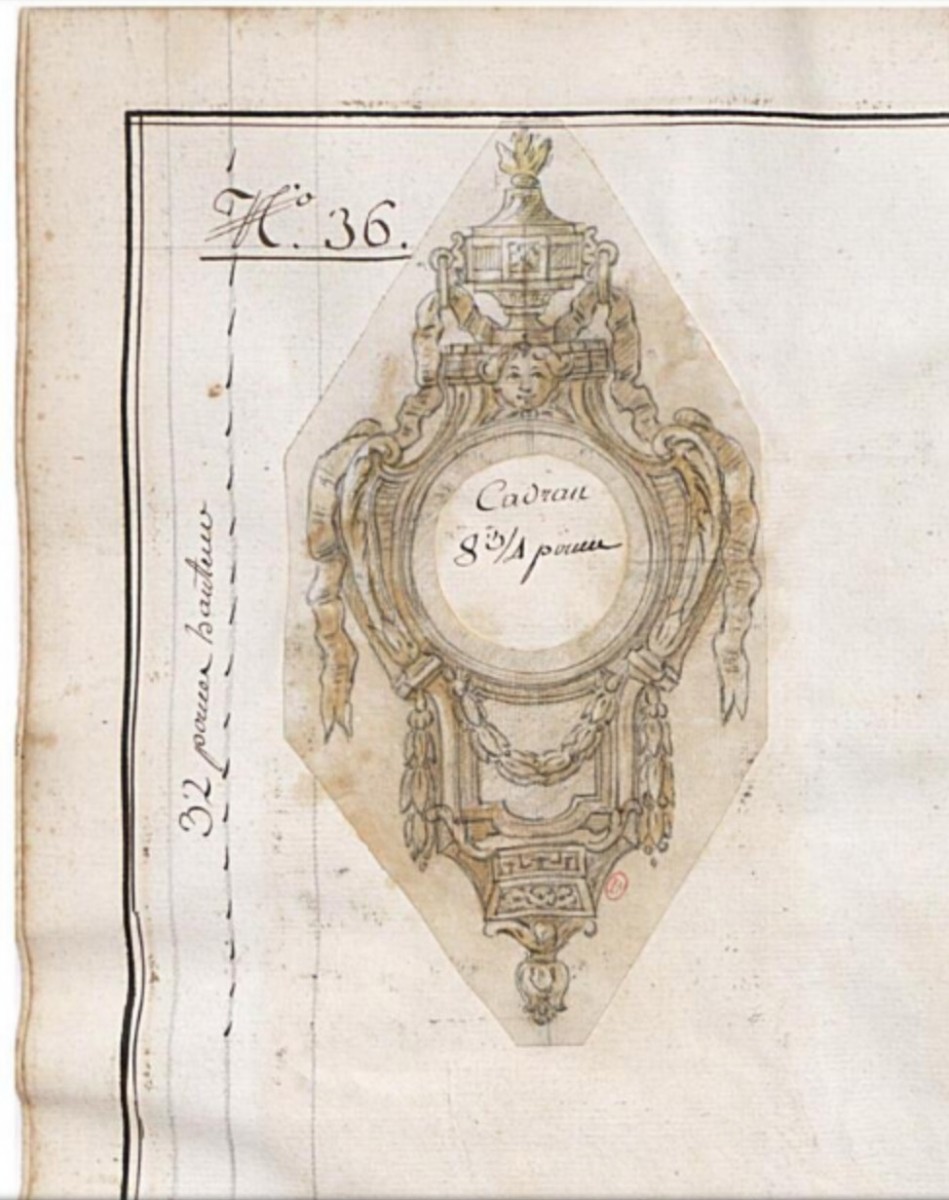 N.º 36.
Cadran
8 3/4 pouces
32 pouces hauteur